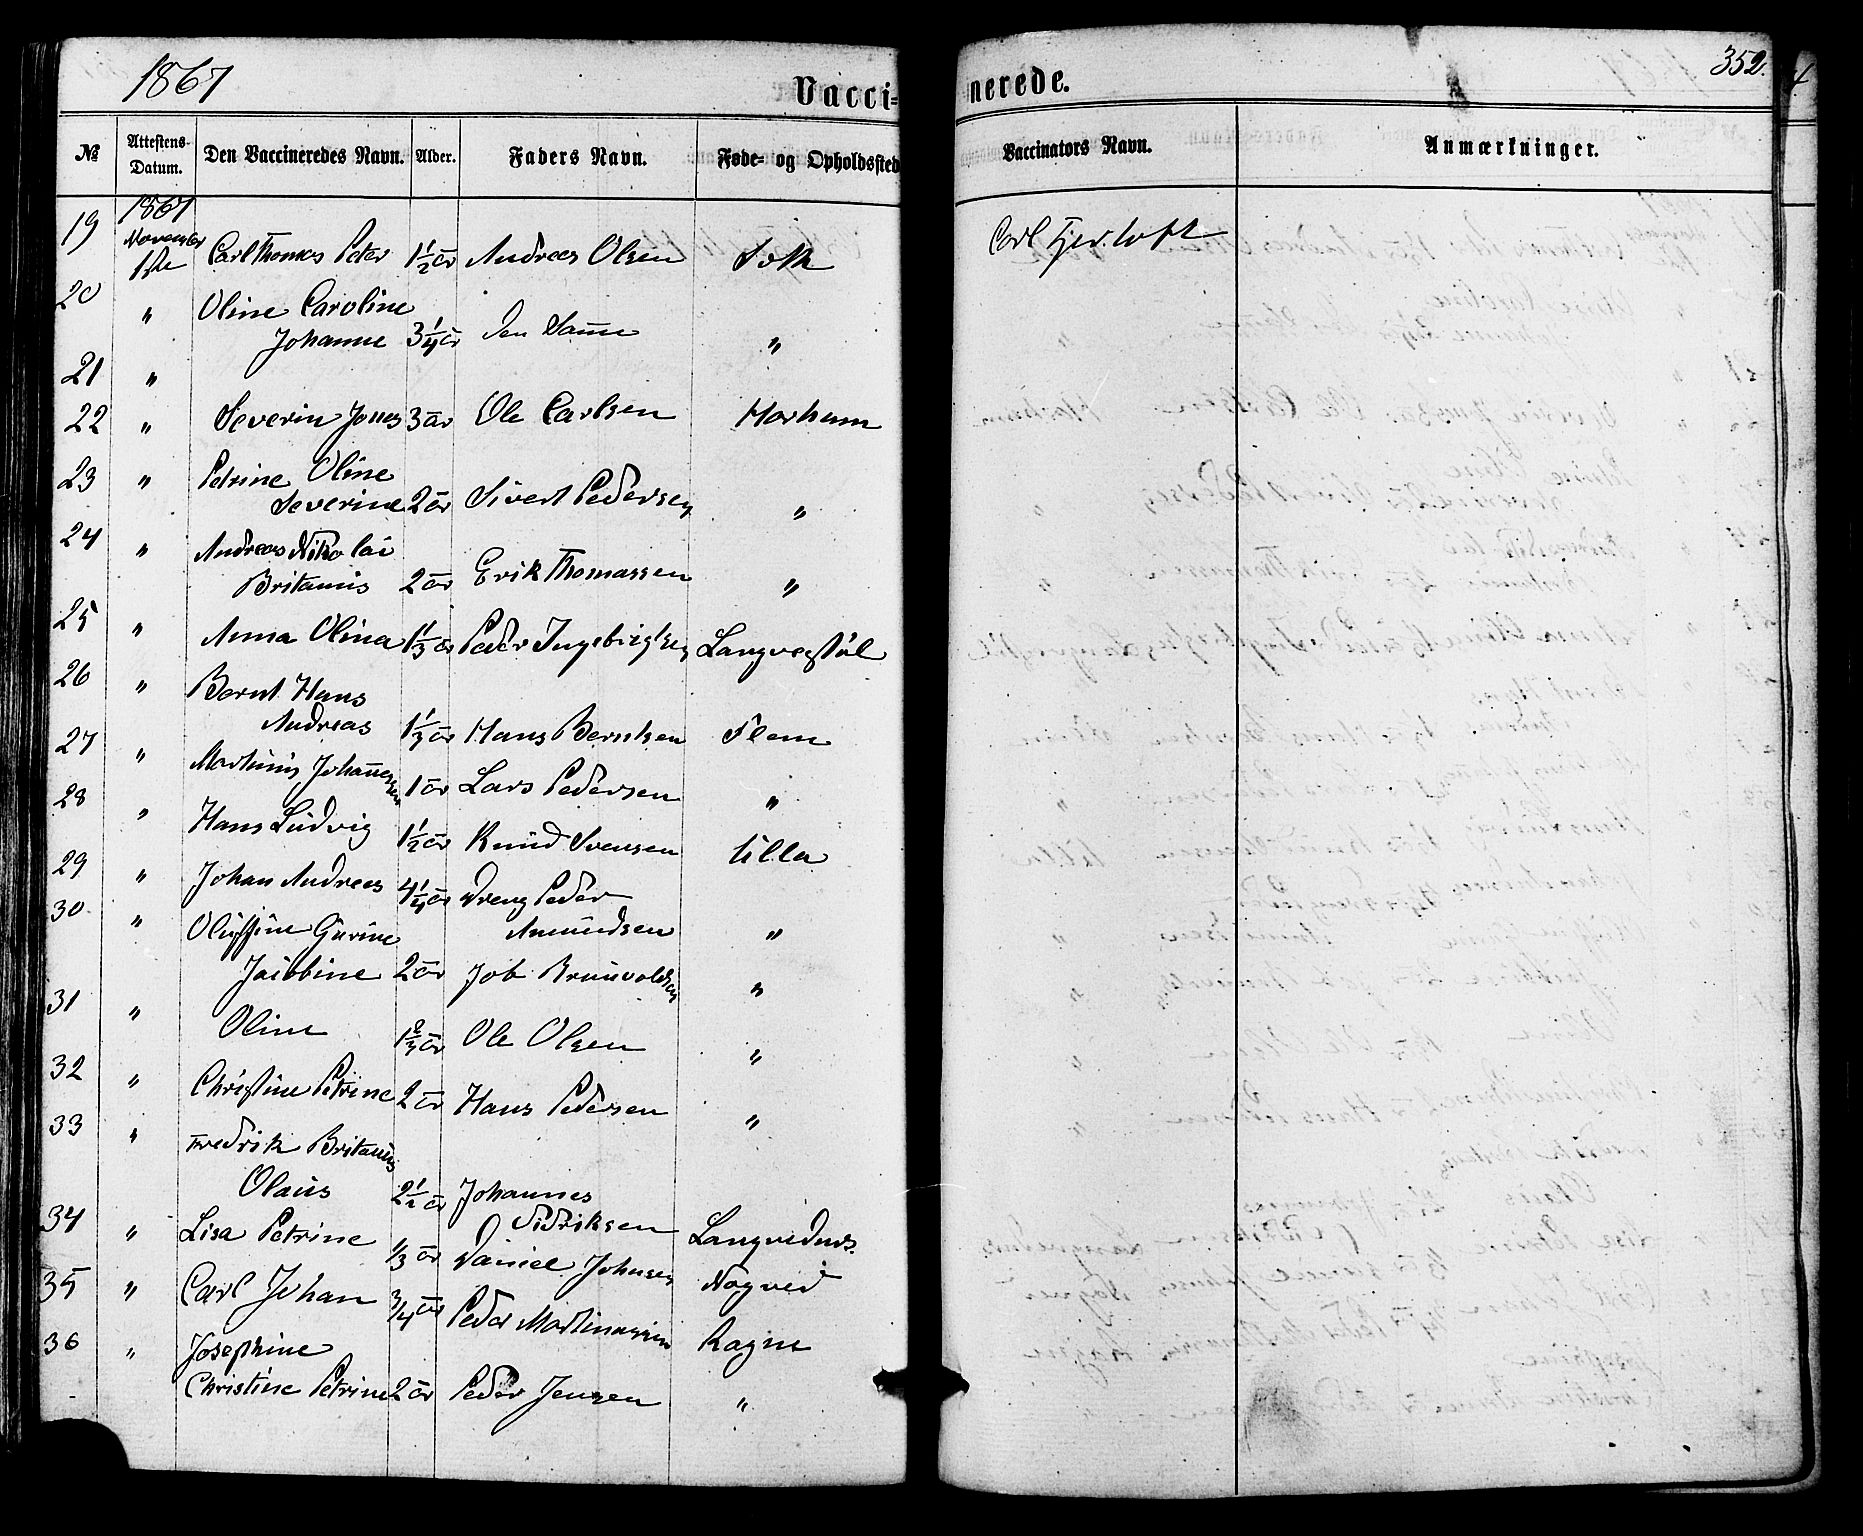 1867
Vacci=
nerede.
352.
№ Attestens- Datum. Den Vaccineredes Navn. Alder. Faders Navn. Føde- og Opholdssted
Vaccinators Navn. Anmærkninger.
1867
19 November 1ste Carl Thomas Peter 1½ år Andreas Olsen Carl
20 " Oline Caroline
Johanne 3¼ år den Samme "
21 "
22 " Severin Jonas 3 år Ole Carlsen
23 " Petrine Oline
Severine 2 år Sivert Pedersen "
24 " Andreas Nikolai
Britanus 2 år Erik Thomassen "
25 " Anna Olina 1⅓ år Peder Ingebrigtsen
26 " Bernt Hans
Andreas 1⅓ år Hans Berntsen Flem
27 " Martinus Johannessen 1 år Lars Pedersen "
28 " Hans Ludvig 1½ år Knud Svensen Ulla
29 " Johan Andreas 4¼ år Dreng Peder
Amundsen "
30 " Gurine
Jacobine 2 år Job Brunvoldsen "
31 " Oline 1⅔ år Ole Olsen "
32 " Christine Petrine 2 år Hans Pedersen "
33 " Fredrik Britanus
Olaus 2½ år Johannes
Didriksen
34 " Lisa Petrine ⅓ år Daniel Johnsen
35 " Carl Johan ¾ år Peder Martinussen
36 " Josephine
Christine Petrine 2 år Peder Jensen "